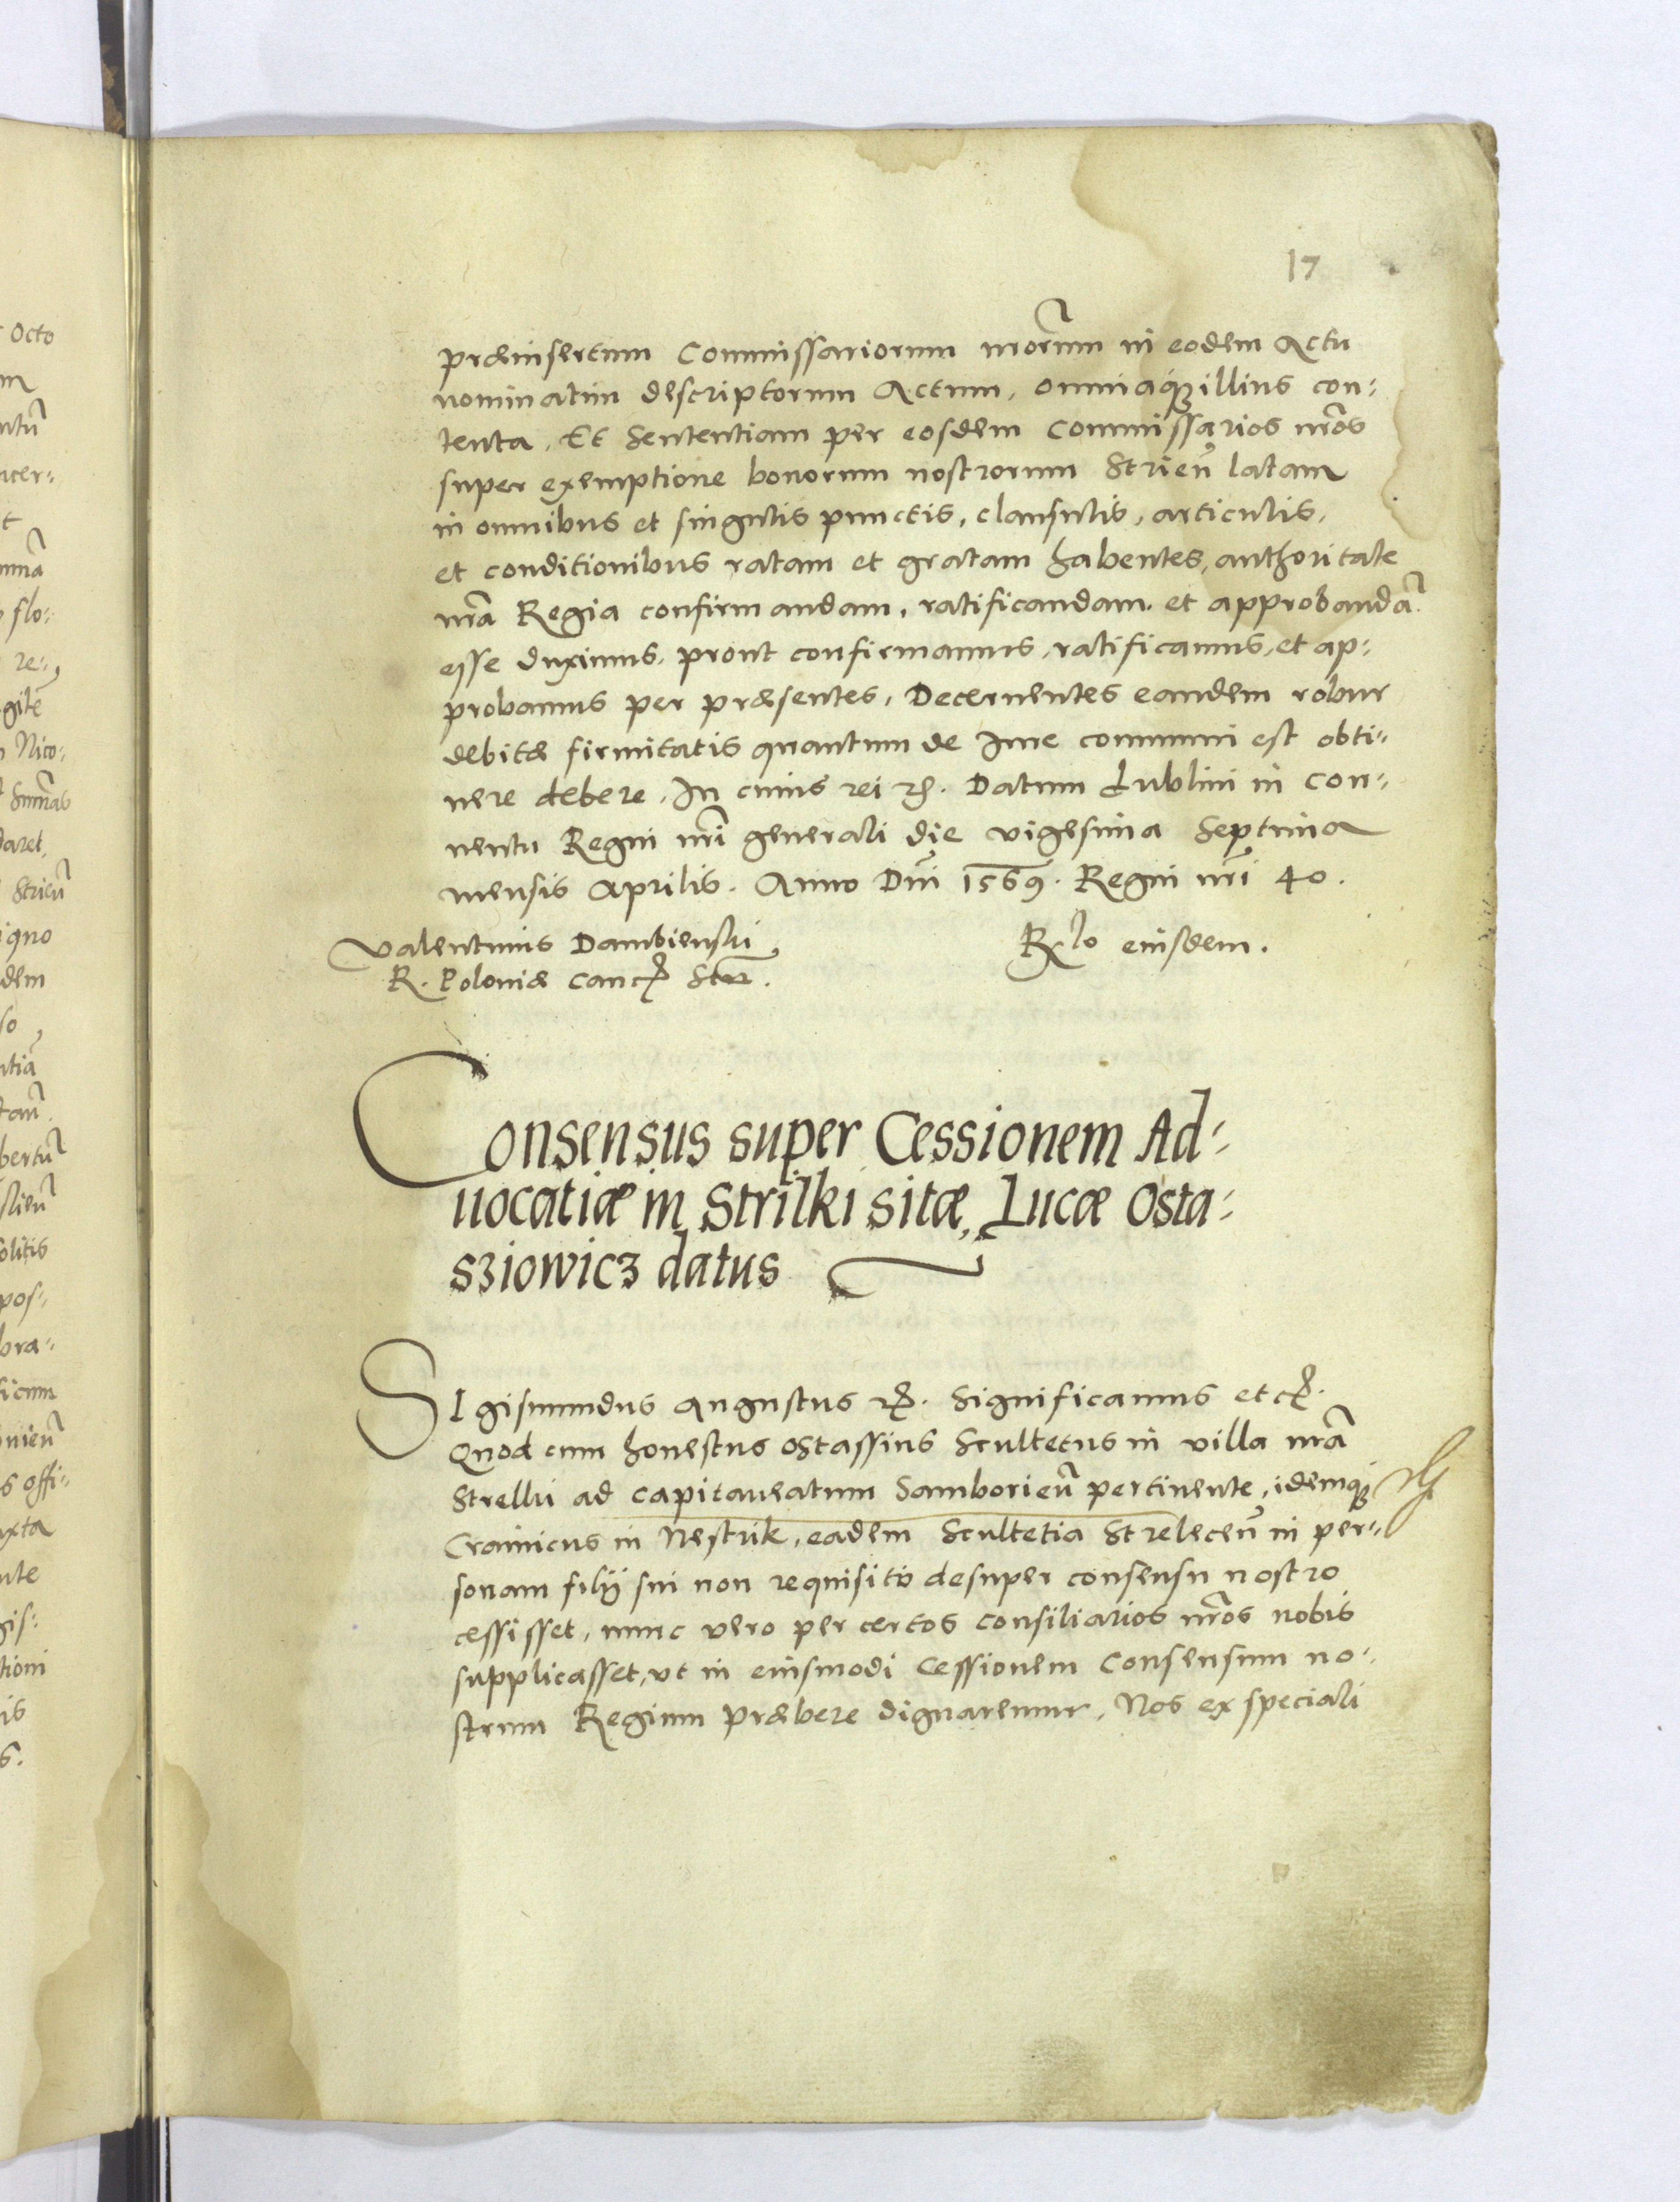 17
præinsertum Commissariorum nrõrum in eodem Actu
nominatim descriptorum Actum, omniaq; illius con-
tenta, Et Sententiam per eosdem Commissarios nrõs
super exemptione bonorum nostrorum Strieñ latam
in omnibus et singulis punctis, clausulis, articulis,
et conditionibus ratam et gratam habentes, authoritate
nrã Regia confirmandam, ratificandam et approbandã
esse duximus, prout confirmamus, ratificamus, et ap-
probamus per præsentes, Decernentes eandem robur
debitæ firmitatis quantum de Iure communi est obti-
nere debere, In cuius rei &c. Datum Lublini in con-
uentu Regni nrĩ generali die vigesima Septima
mensis Aprilis. Anno Dnĩ 1569. Regni nrĩ 40.
Valentinus Dambienski
R. Poloniæ canc&. Sstt.
Rlo eiusdem.
Consensus super Cessionem Ad-
uocatiæ in Strilki sitæ, Lucæ Osta-
sziowicz datus
SIgismundus Augustus &c. Significamus etc&.
Quod cum honestus Ostassius Scultetus in villa nrã
Strelki ad capitaneatum Samborieñ pertinente, idemq;
Crainicus in Nestrik, eadem Scultetia Streleceñ in per-
sonam filij sui non requisito desuper consensu nostro
cessisset, nunc vero per certos consiliarios nrõs nobis
supplicasset, vt in eiusmodi Cessionem Consensum no-
strum Regium Præbere dignaremur, Nos ex speciali
Octo
ntũ
ncer-
t
flo-
re-
gitẽ
Nico-
Summas
daret,
Strieñ
igno
dem
so
ntiã
bertũ
slieñ
solitis
pos-
bra-
ficum
s offi-
uxta
nte
gis-
tioni
is